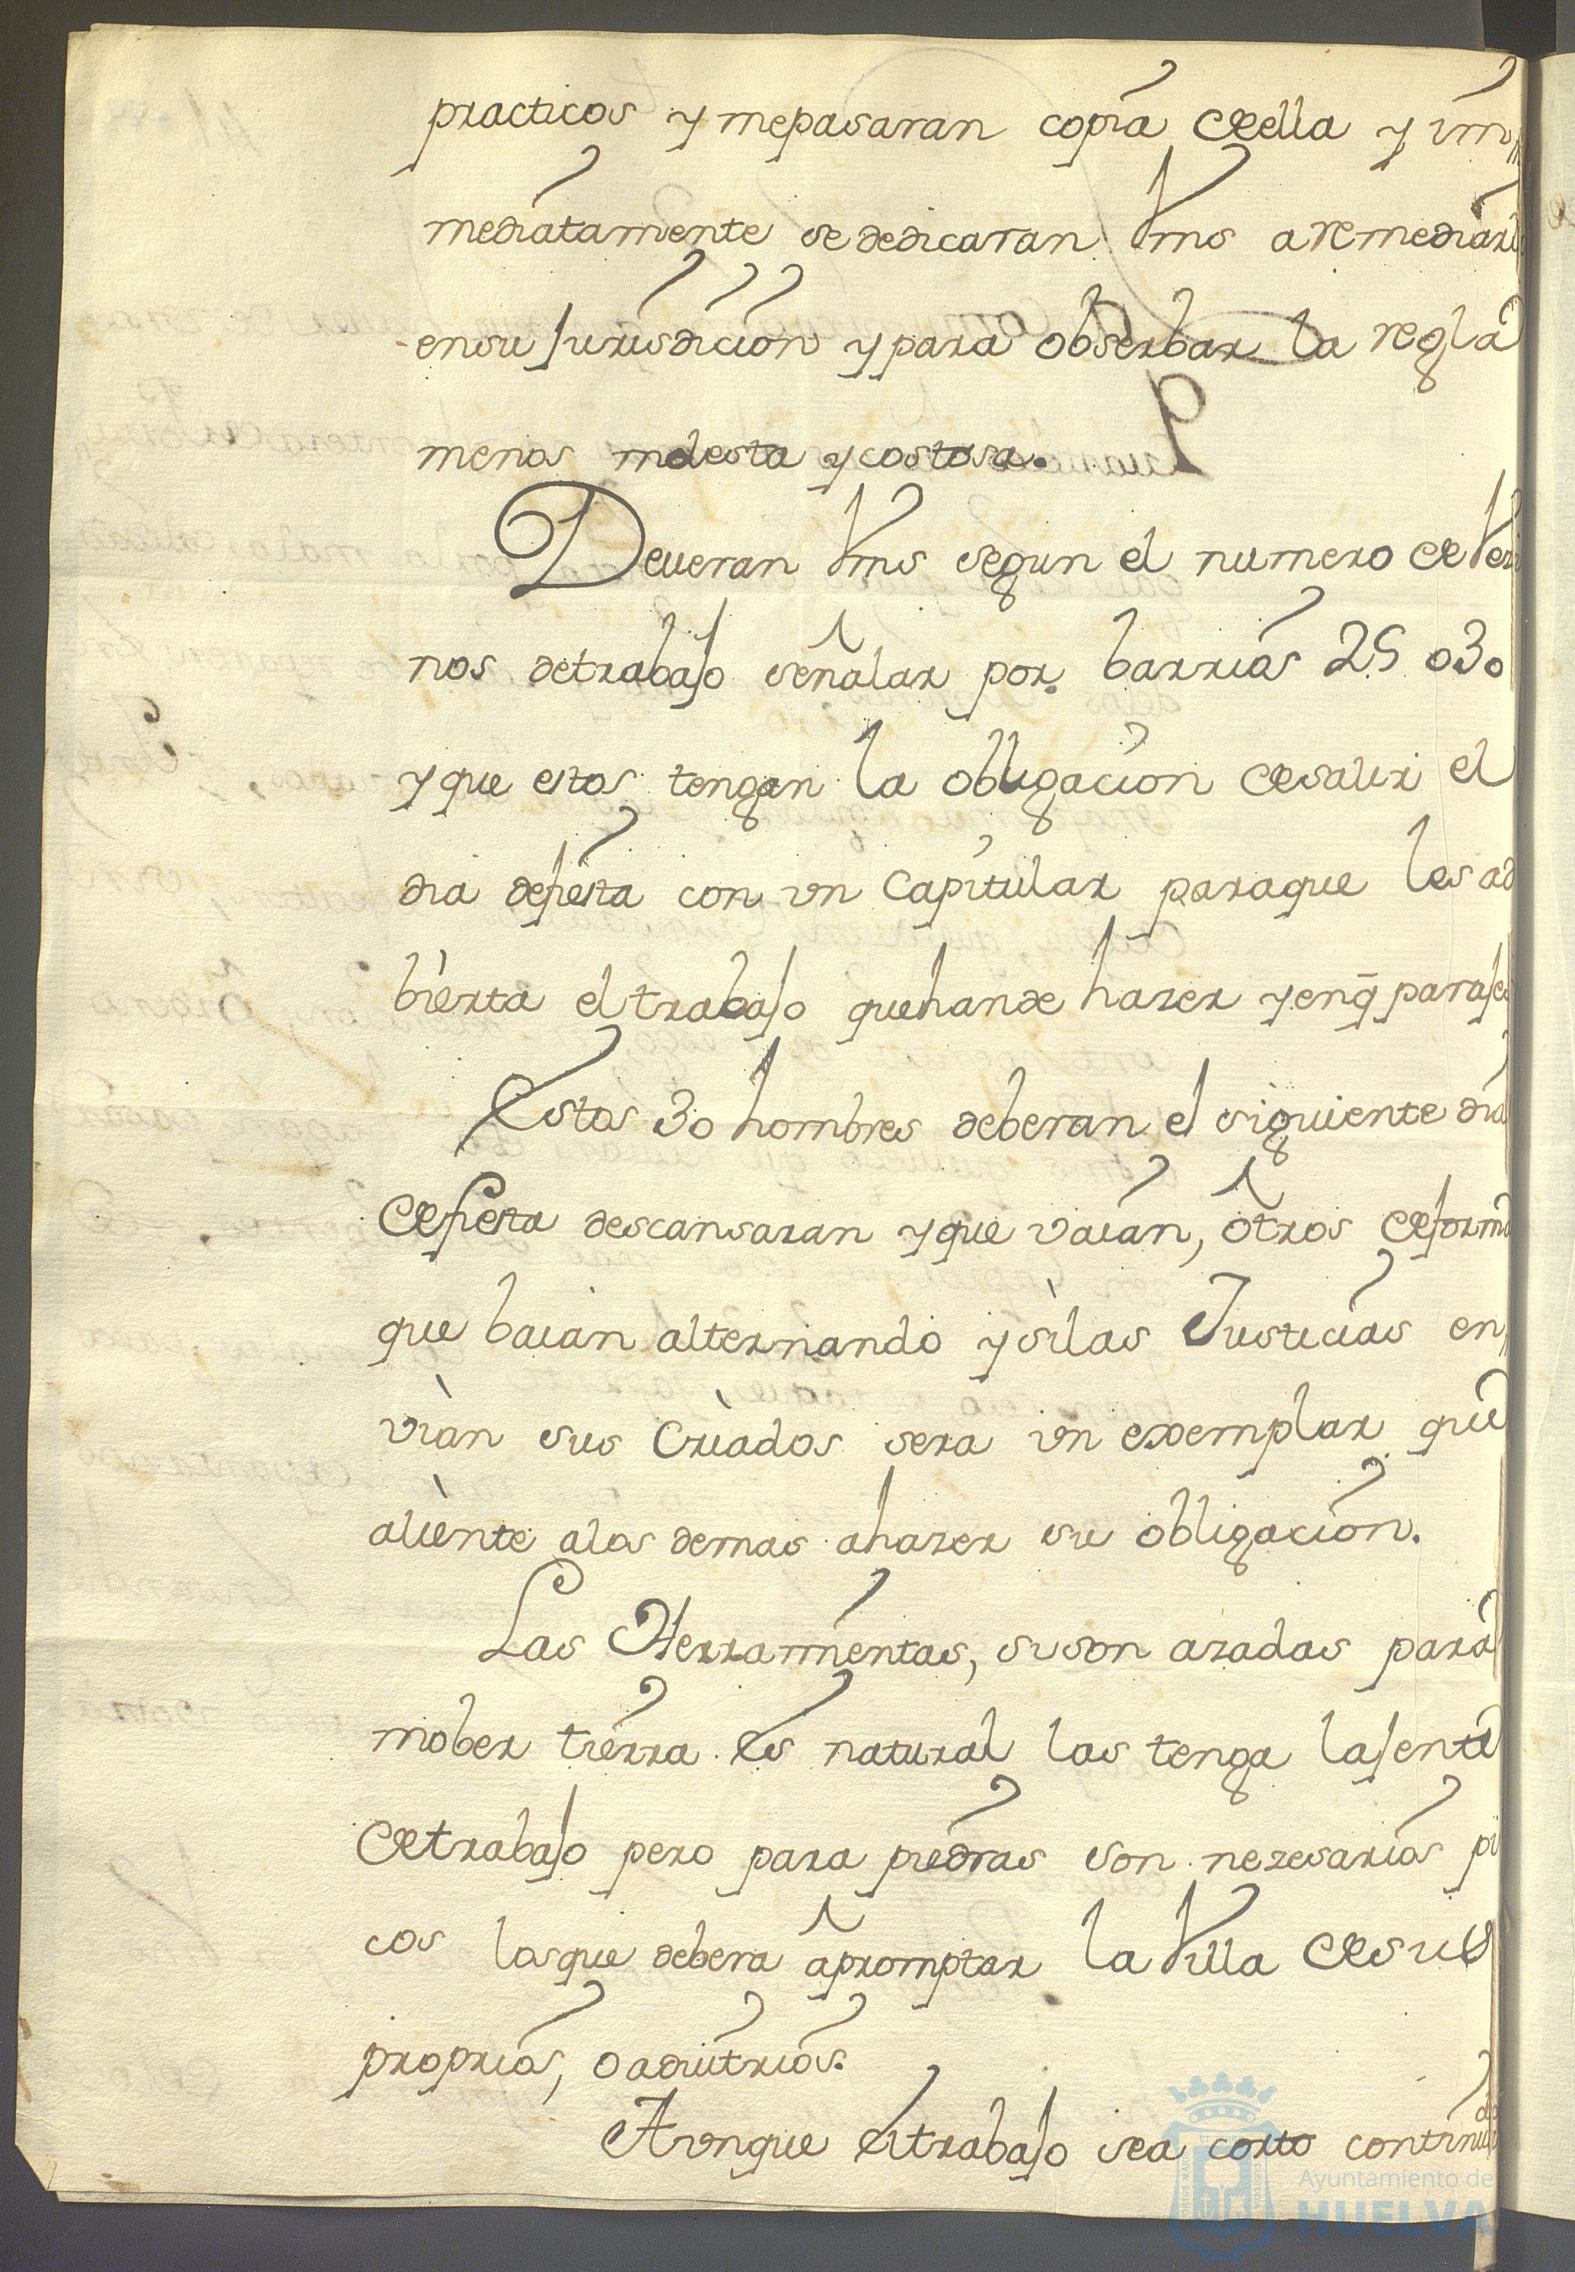 practicos y mepasaran copia deella y im
mediatamente se dedicaran Vms a remediarl
ensu Jurisdicion y para obserbar la regla
menos molesta y costosa.
Deveran Vms segun el numero de Veci
nos detrabajo señalar por barrios 25 o 30
y que estos tengan la obligacion desalir el
dia defiesta con vn Capitular paraque les ad
bierta el trabajo quehande hazer y enq̃ parajes
Estos 30 hombres deberan el siguiente dia
defiesta descansaran y que vaian, otros deforma
que baian alternando y silas Justicias en
vian sus Criados sera vn exemplar que
aliente alos demas ahazer su obligacion.
Las Herramientas, sison azadas para
mober tierra es natural las tenga laJente
detrabajo pero para piedras son nezesarios pi
cos losque debera apromptar la Villa desus
proprios, o aduitrios.
Aunque eltrabajo sea corto continuado
Ayuntamiento de
HUELVA